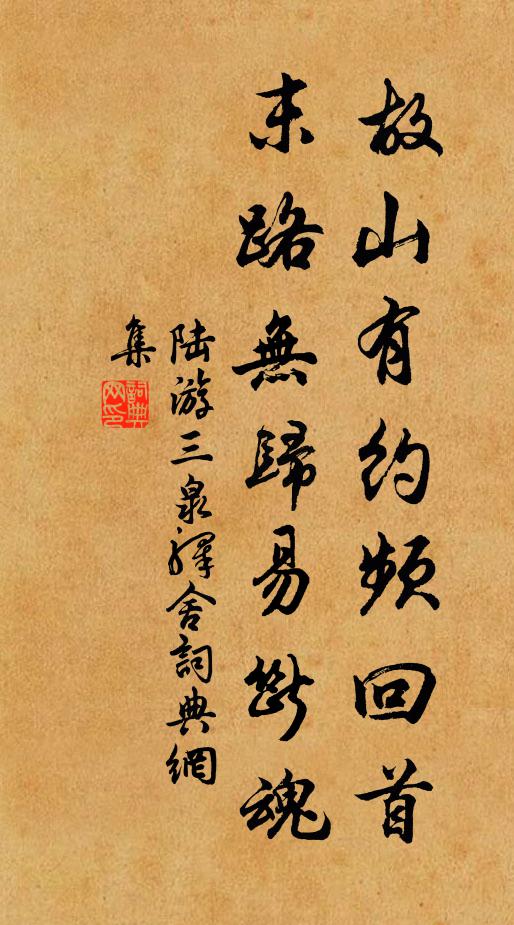 故山有約頻回首
末路無歸易斷魂
陸游三泉驛舍詞典網
集
詞典
网印